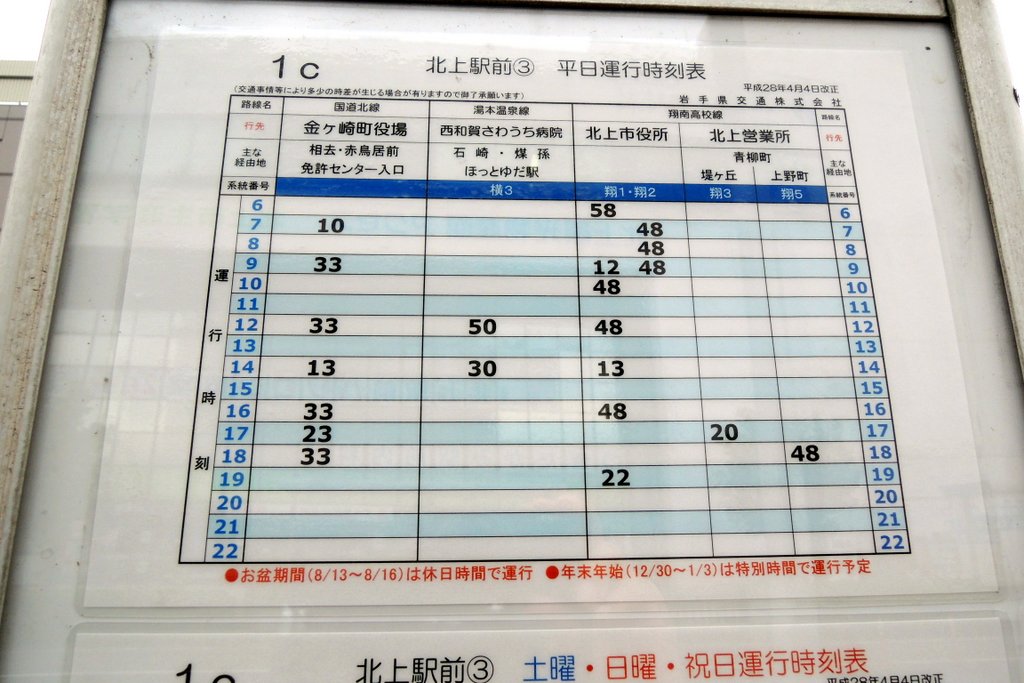 1c 北上駅前③ 平日運行時刻表
(交通事情等により多少の時差が生じる場合が有りますので御了承願います) 平成28年4月4日改正
岩手県交通株式会社
路線名 国道北線 湯本温泉線 翔南高校線 路線名
行先 金ヶ崎町役場 西和賀さわうち病院 北上市役所 北上営業所 行先
主な経由地 相去・赤鳥居前 石崎・煤孫 青柳町 主な経由地
免許センター入口 ほっとゆだ駅 堤ヶ丘 上野町
系統番号 横3 翔1・翔2 翔3 翔5 系統番号
運行時刻
6 58 6
7 10 48 7
8 48 8
9 33 12 48 9
10 48 10
11 11
12 33 50 48 12
13 13
14 13 30 13 14
15 15
16 33 48 16
17 23 20 17
18 33 48 18
19 22 19
20 20
21 21
22 22
●お盆期間(8/13～8/16)は休日時間で運行 ●年末年始(12/30～1/3)は特別時間で運行予定
1c 北上駅前③ 土曜・日曜・祝日運行時刻表
平成28年4月4日改正